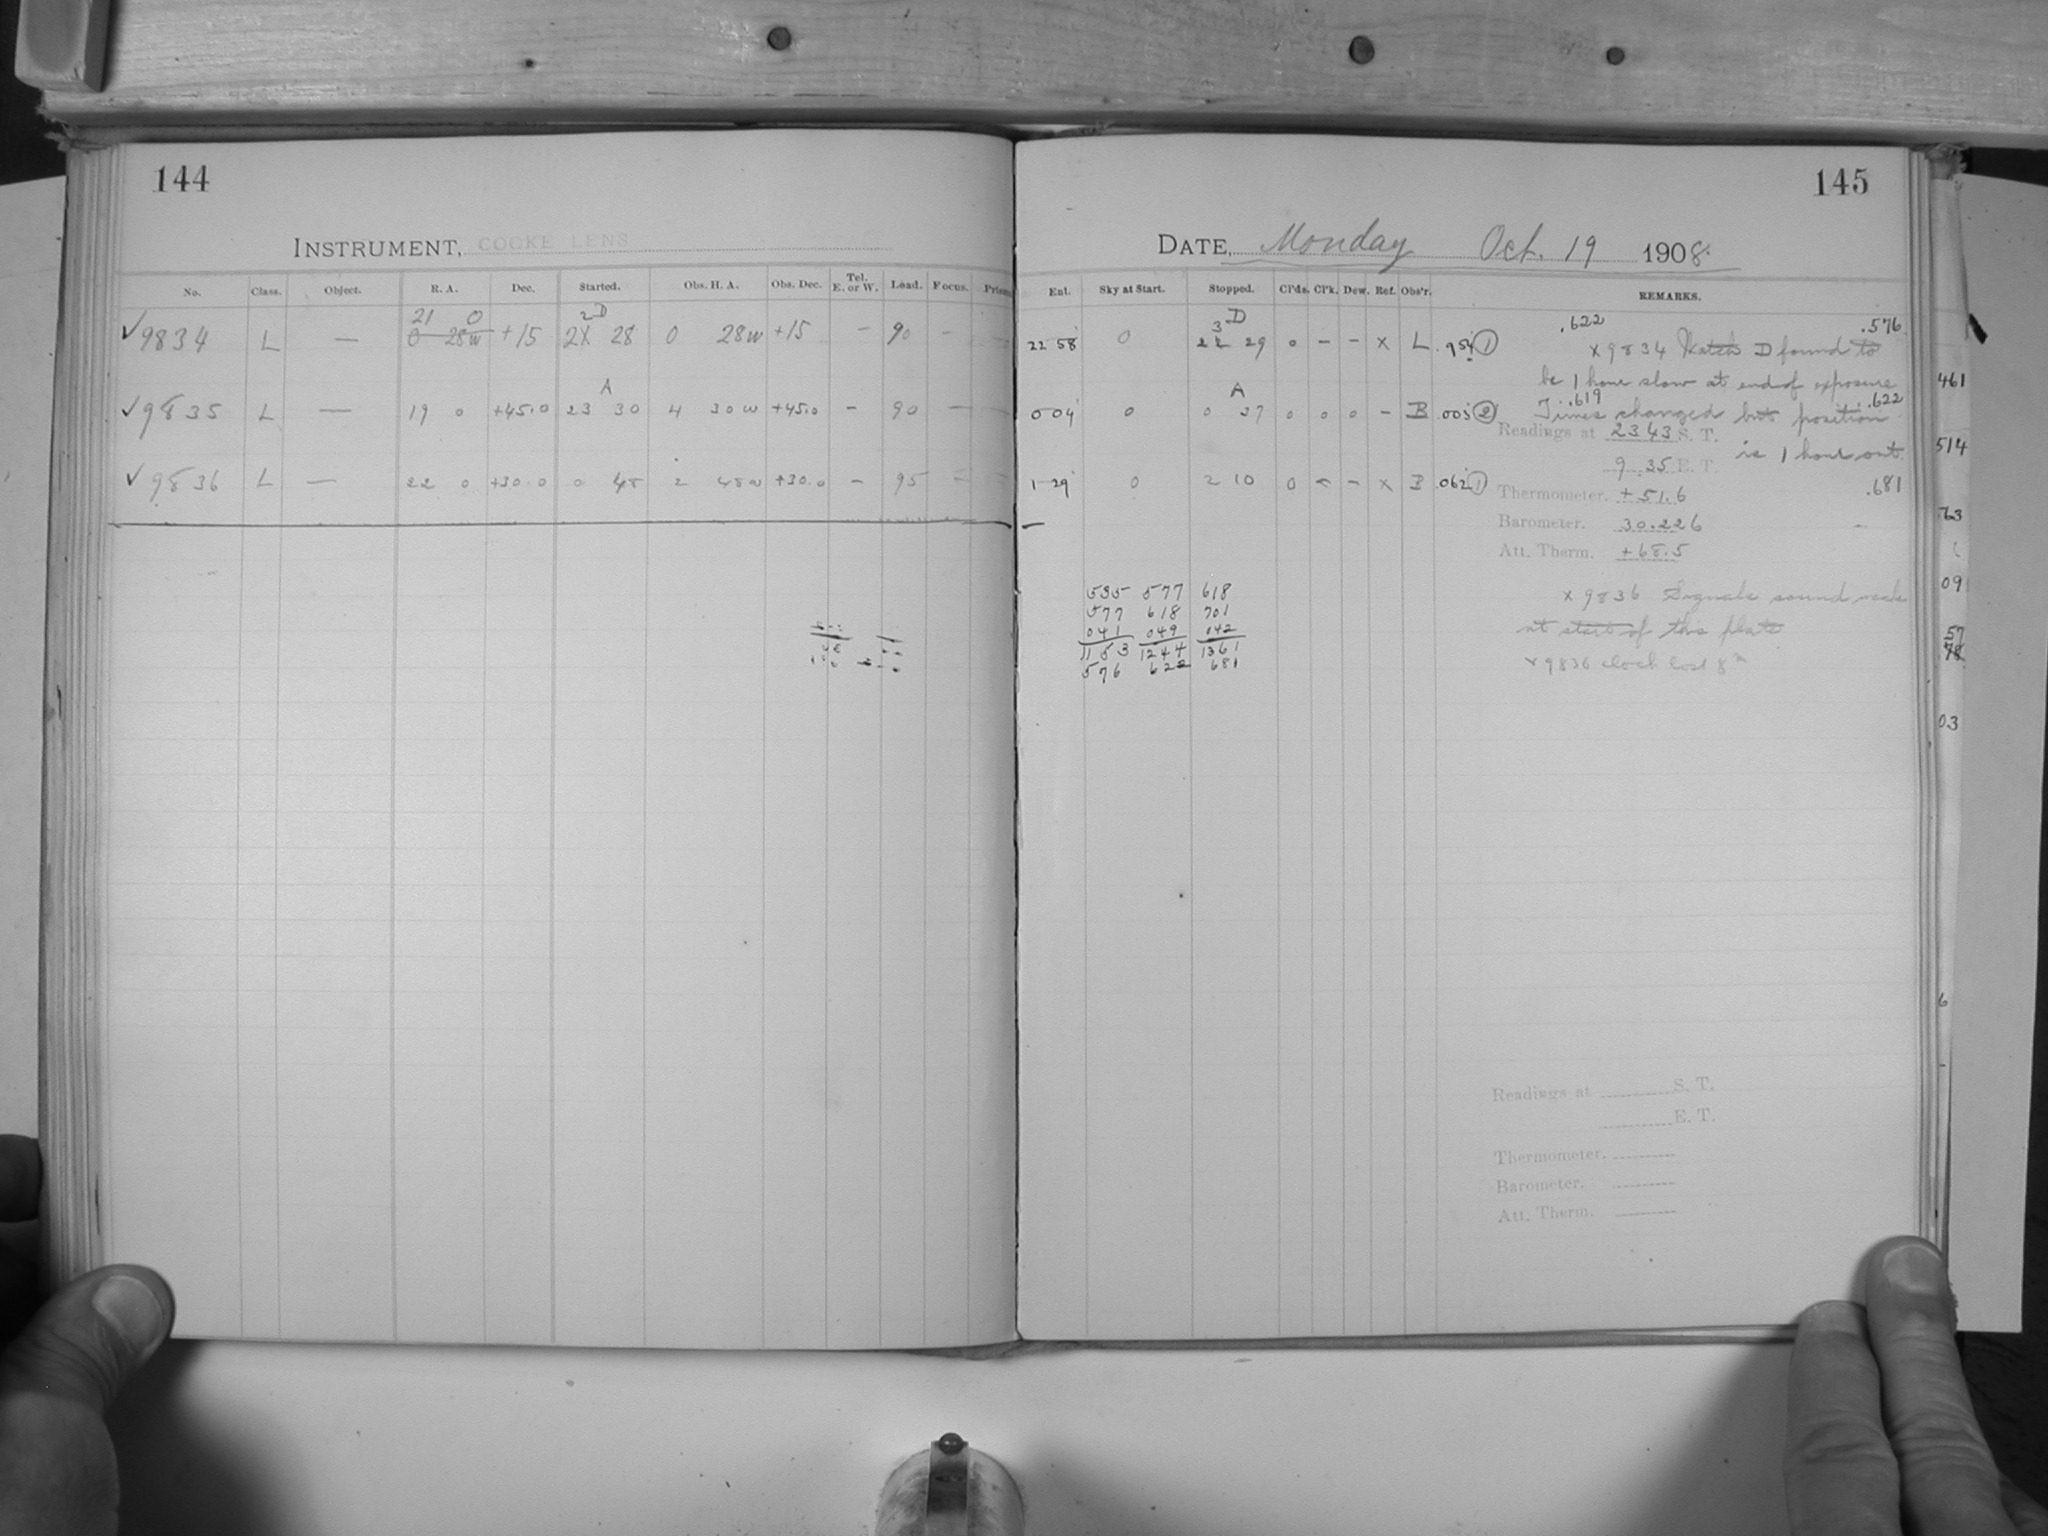 144
INSTRUMENT, COOKE LENS
No. Class. Object. R. A. Dec. Started. Obs. H. A. Obs. Dec. Tel. E. or W. Load. Focus. Prism
21 0 2 D
✓ 9834 L — 0 28w +15 2X 28 0 28w +15 — 90 — —
A
✓ 9835 L — 19 0 +45.0 23 30 4 30w +45.0 — 90 — —
✓ 9836 L — 22 0 +30.0 0 48 2 48w +30.0 — 95 — —
145
DATE, Monday Oct. 19 1908.
Ent. Sky at Start. Stopped. Cl'ds. Cl'k. Dew. Ref. Obs'r. REMARKS.
3 D .622 .576
22 58 0 22 29 0 – – x L .954 1 x 9834 Watch D found to
be 1 hour slow at end of exposure
A .619 .622
0 04 0 0 37 0 0 0 – B .003 2 Times changed but position
Readings at 23 43 S. T. is 1 hour out
9 35 E. T.
1 29 0 2 10 0 – – x B .062 1
Thermometer. +51.6 .681
Barometer. 30.226
Att. Therm. +68.5
535 577 618
577 618 701
041 049 042
1153 1244 1361
576 622 681
x 9836 Signals sound weak
at start of this plate
x 9836 clock lost 8
Readings at S. T.
E. T.
Thermometer.
Barometer.
Att. Therm.
461
514
63
09
57
78
03
6